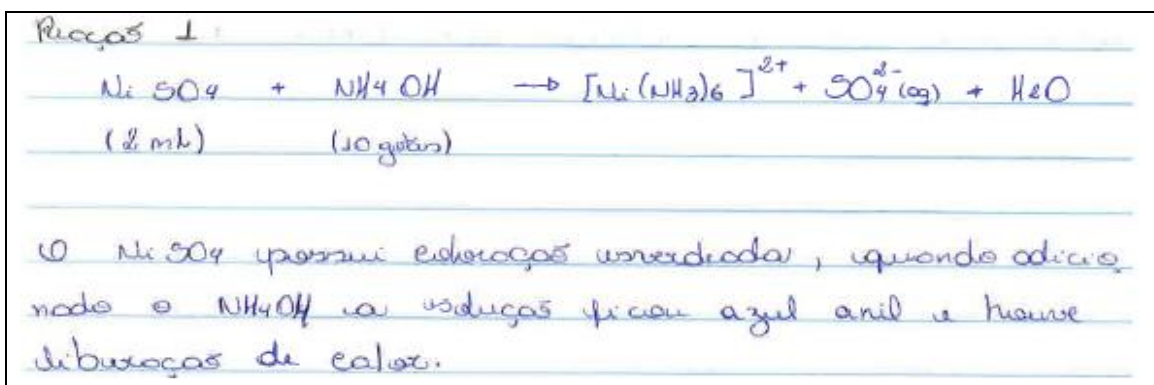 Reação 1:
Ni SO4 + NH4 OH → [Ni(NH3)6]²⁺ + SO4²⁻(aq) + H2O
(2 mL) (10 gotas)
O Ni SO4 possui coloração esverdeada, quando adicio
nado o NH4OH a solução ficou azul anil e houve
liberação de calor.